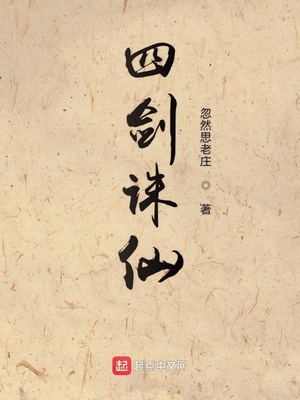 四剑诛仙
忽然思老庄 ◎ 著
起 起点中文网